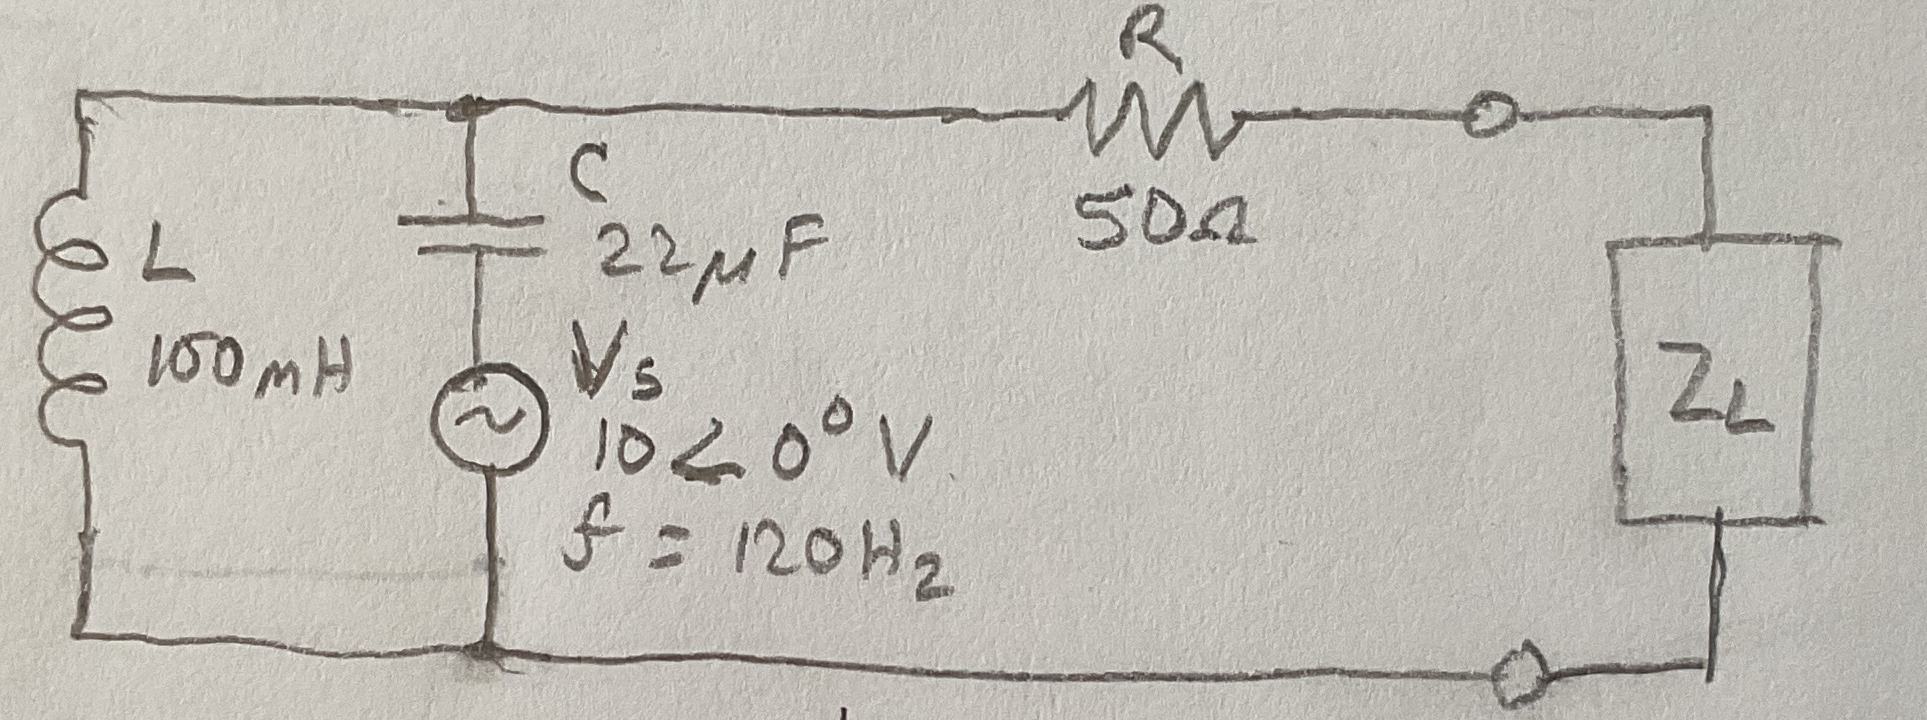 R
50Ω
C
22μF
L
100mH
Vs
10∠0° V
f = 120Hz
ZL